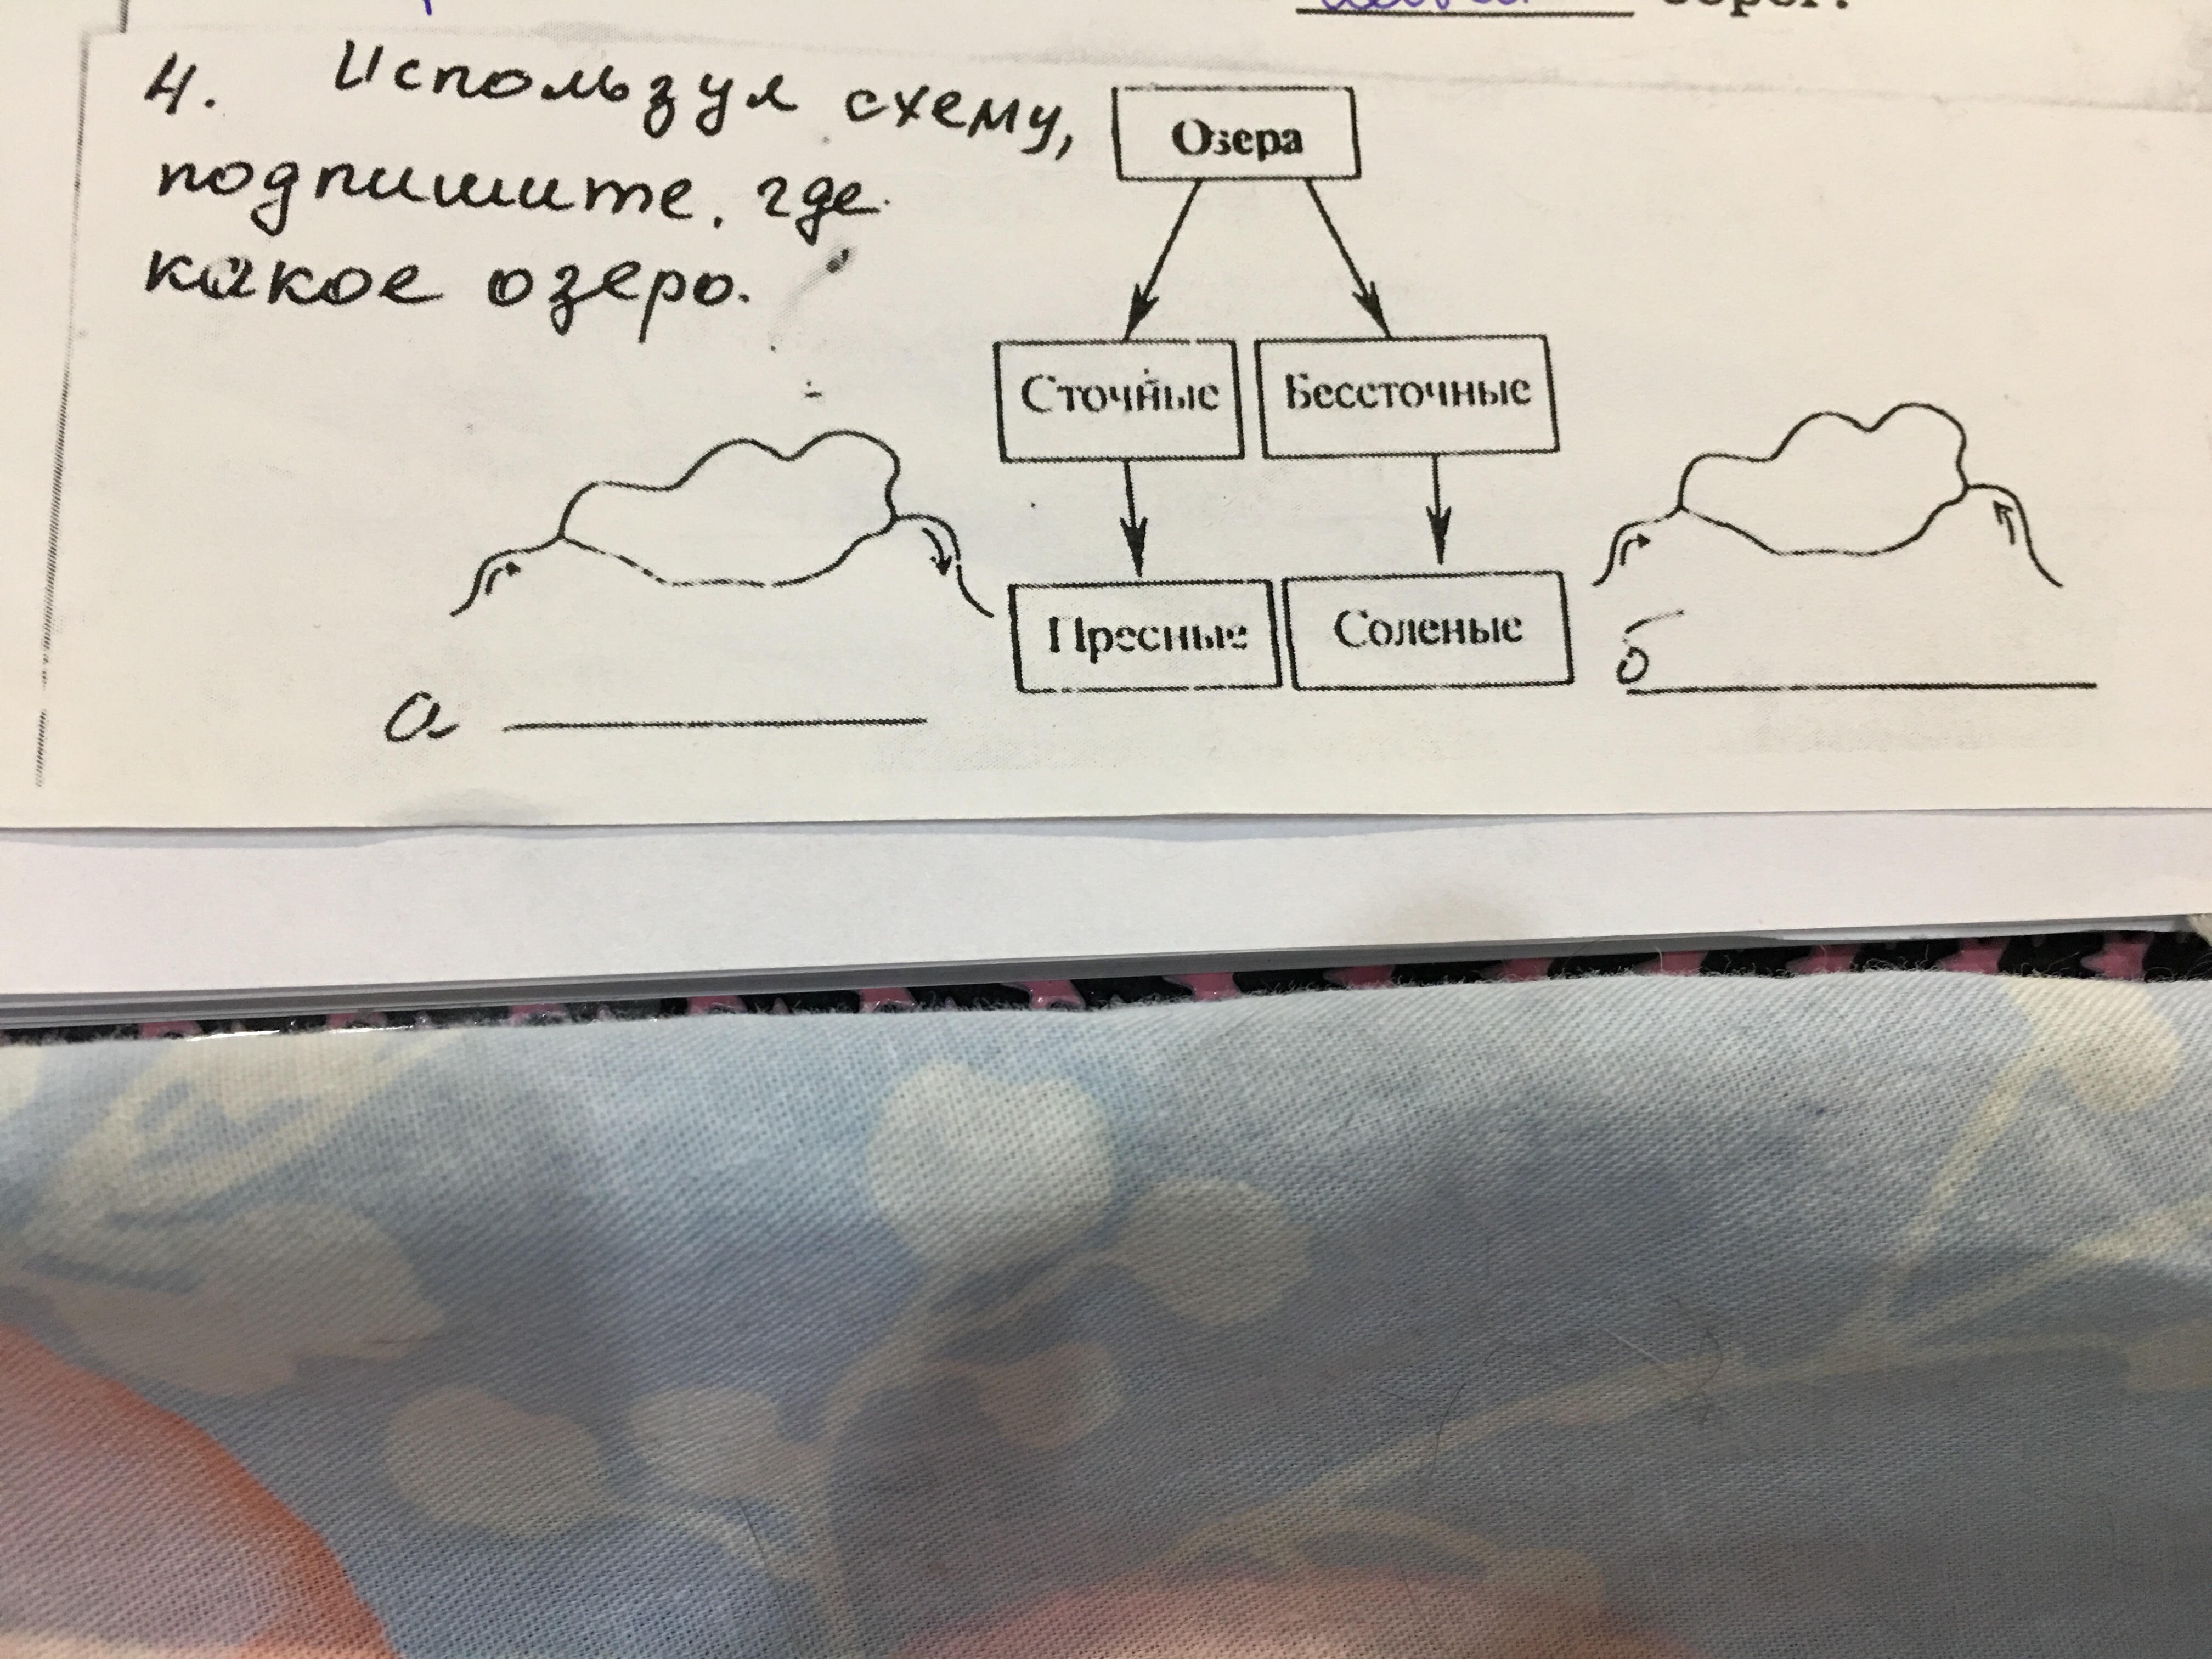 4. Используя схему,
подпишите, где
какое озеро.
Озера
Сточные Бессточные
Пресные Соленые
а
б